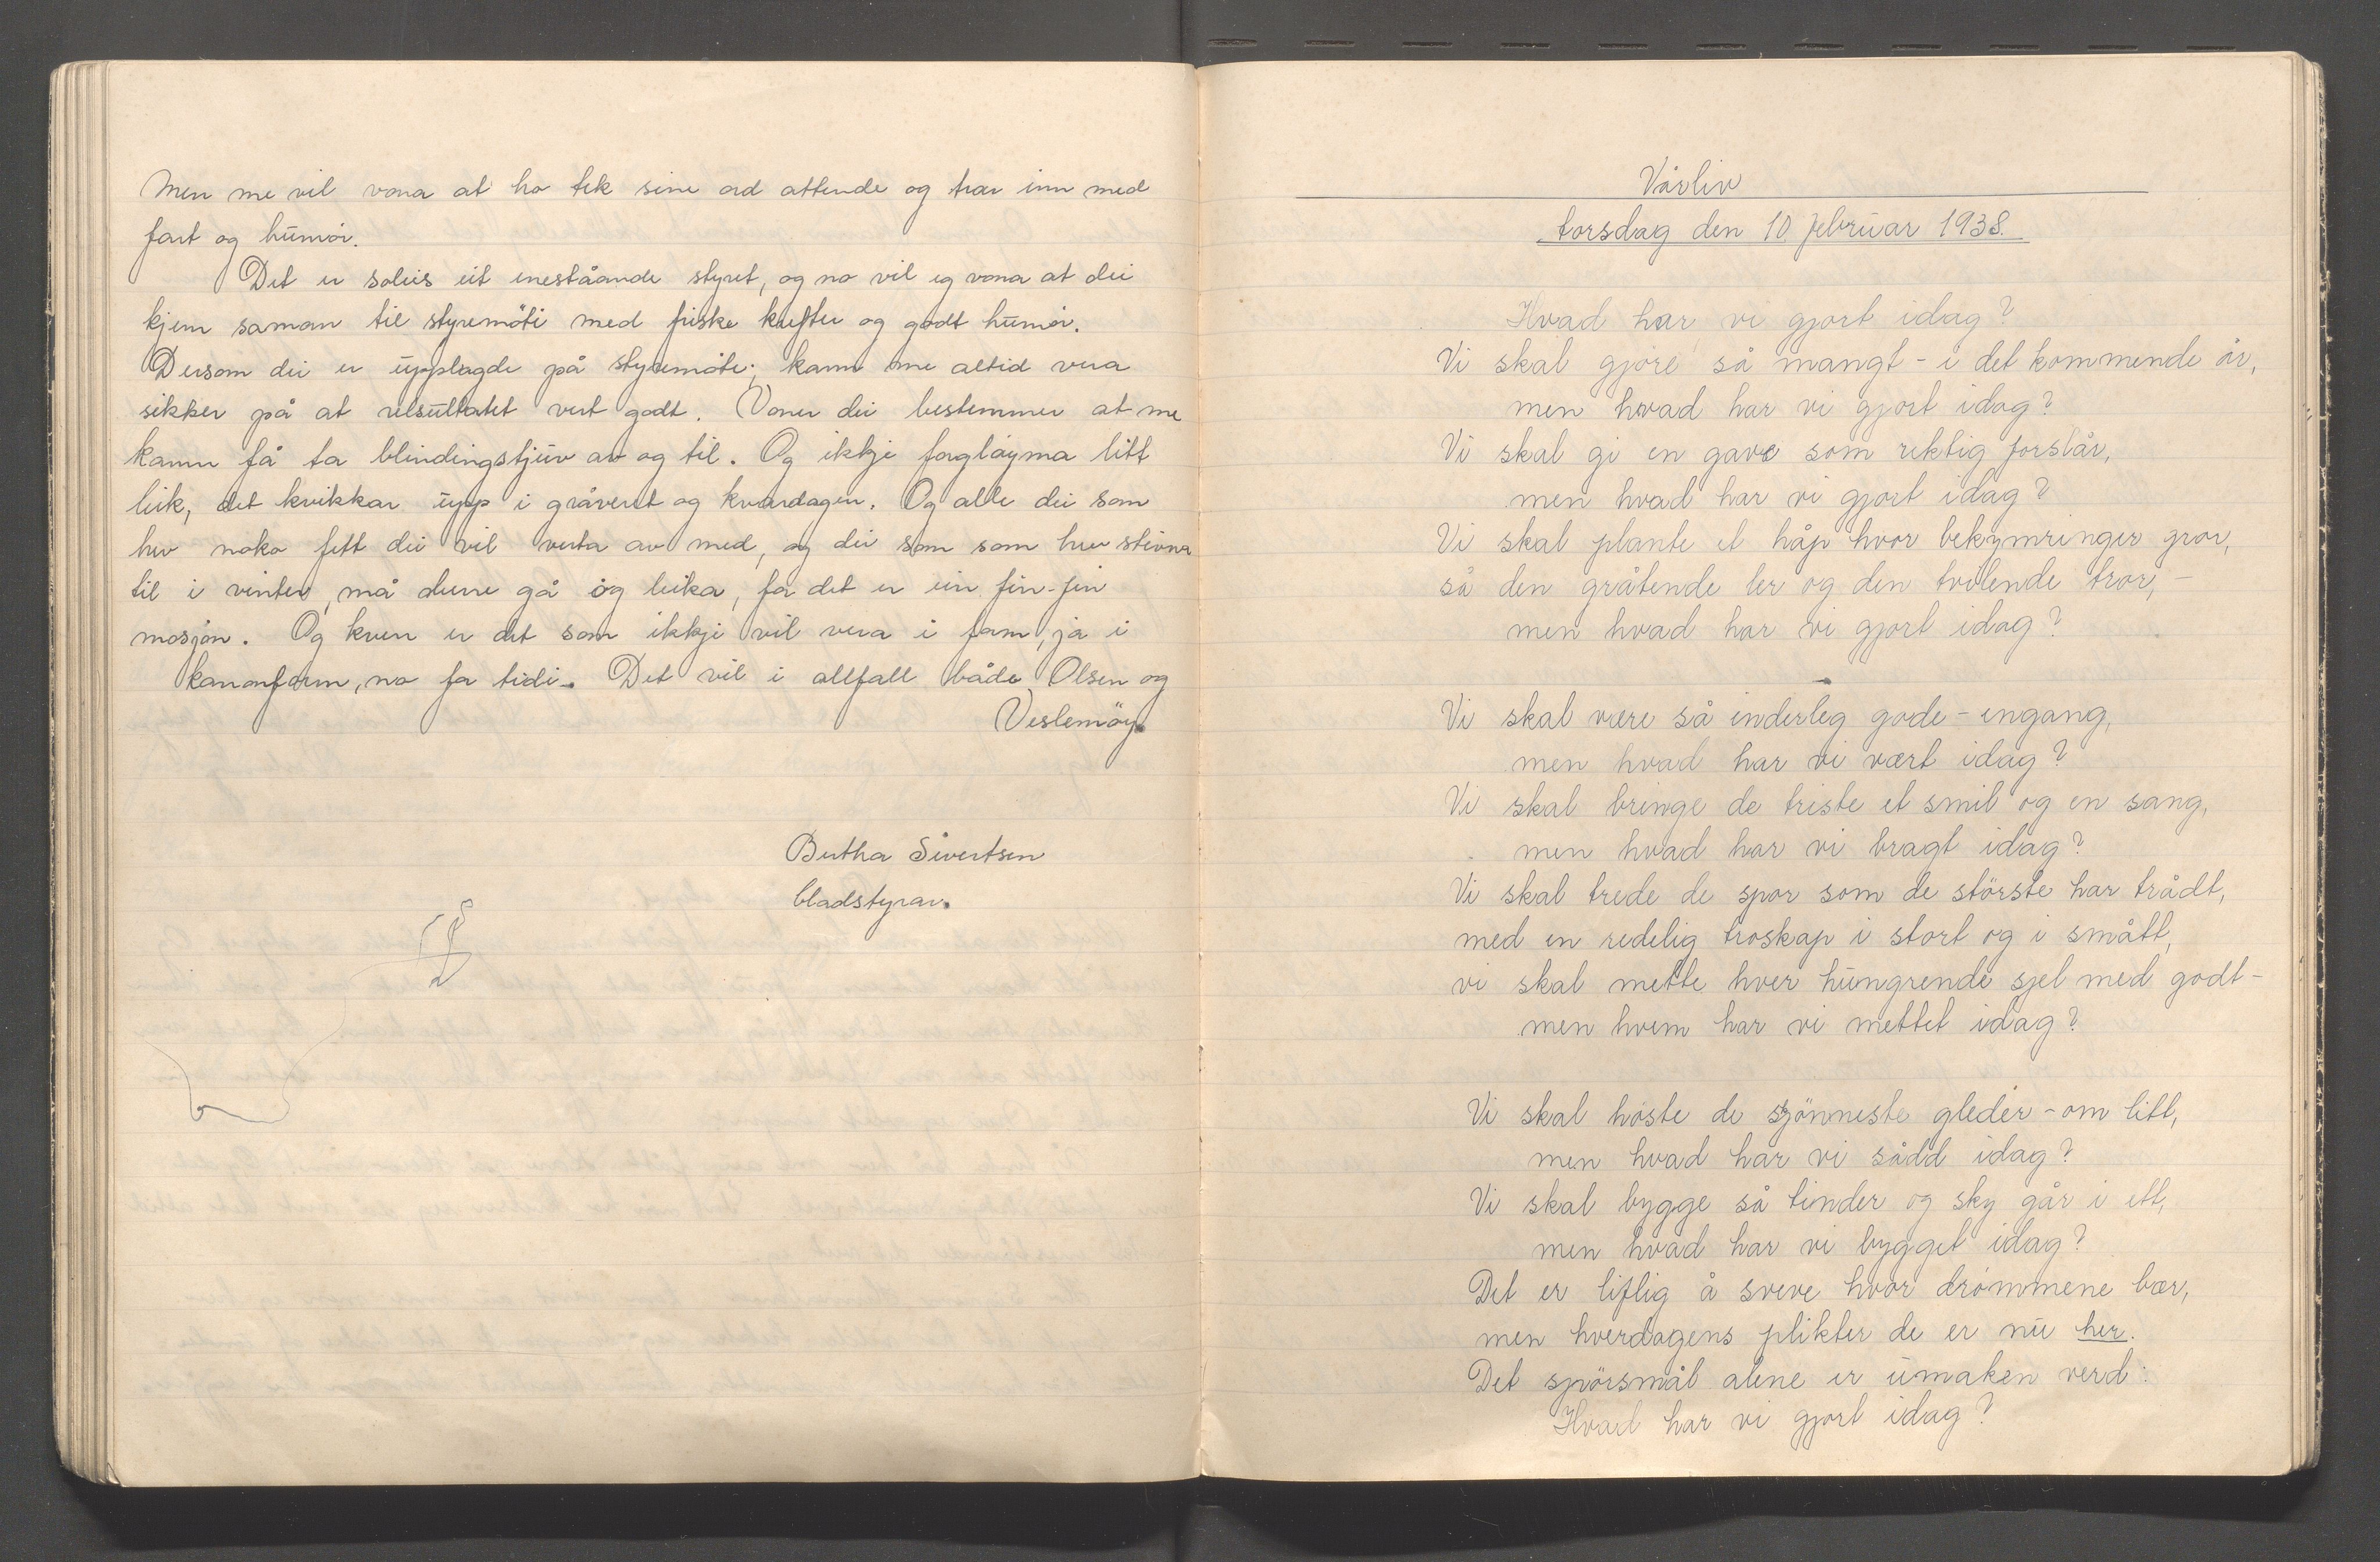 Men me vil vona at ho tek sine ord attende og trør inn med
fart og humør.
Det er soleis eit eneståande styret, og no vil eg vona at dei
kjem saman til styremöti med friske krefter og godt humör.
Dersom dei er upplagde på styremöte; kann me altid vera
sikker på at relsultatet vert godt. Voner dei bestemmer at me
kann få ta blindingstjuv av og til. Og ikkje forglöyma litt
leik, det kvikkar upp i gråveret og kvardagen. Og alle dei som
hev noko fett dei vil verta av med, og dei som som hev stivna
til i vinter, må derre gå og leika, for det er ein fin-fin
mosjon. Og kven er det som ikkje vil vera i form, ja i
kanonform, no for tidi. Det vil i allfall både Olsen og
Veslemöy.
Bertha Sivertsen
bladstyrar.
Vårliv
torsdag den 10 februar 1938.
Hvad har vi gjort idag?
Vi skal gjöre så mangt - i det kommende år,
men hvad har vi gjort idag?
Vi skal gi en gave som riktig forslår,
men hvad har vi gjort idag?
Vi skal plante et håp hvor bekymringer gror,
så den gråtende ler og den tvilende tror, -
men hvad har vi gjort idag?
Vi skal være så inderleg gode - engang,
men hvad har vi vært idag?
Vi skal bringe de triste et smil og en sang,
men hvad har vi bragt idag?
Vi skal trede de spor som de störste har trådt,
med en redelig troskap i stort og i smått,
vi skal mette hver hungrende sjel med godt -
men hvem har vi mettet idag?
Vi skal höste de sjönneste gleder - om litt,
men hvad har vi sådd idag?
Vi skal bygge så tinder og sky går i ett,
men hvad har vi bygget idag?
Det er liflig å sveve hvor drömmene bær,
men hverdagens plikter de er nu her.
Det spörsmål alene er umaken verd:
Hvad har vi gjort idag?